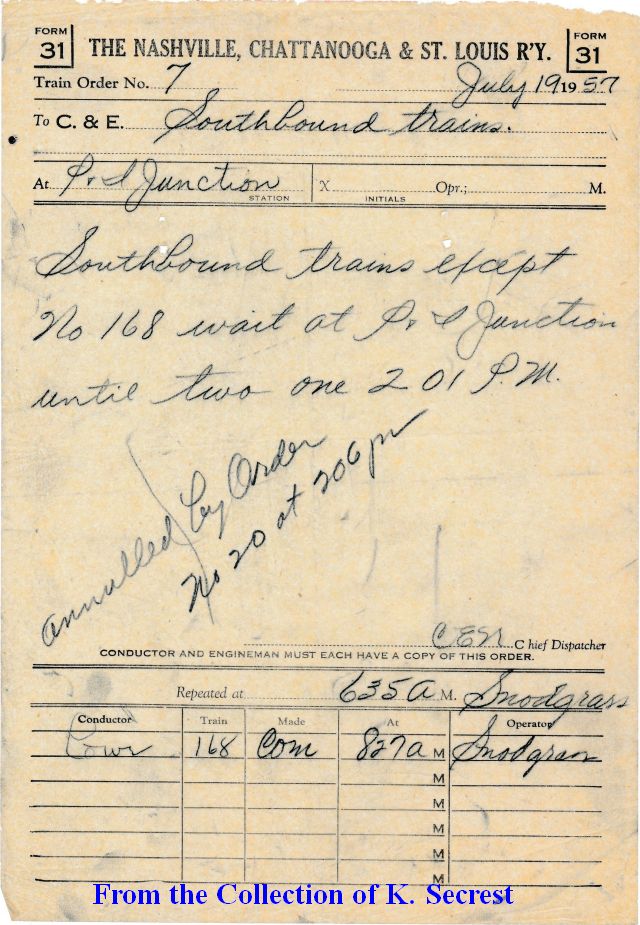 FORM 31 THE NASHVILLE, CHATTANOOGA & ST. LOUIS R'Y. FORM 31
Train Order No. 7 July 19 1957
To C. & E. Southbound trains.
At P. & I Junction X Opr.; M.
STATION INITIALS
Southbound trains except
No 168 wait at P. & I Junction
until two one 2 01 P.M.
annulled by Order
No 20 at 206 pm
Chief Dispatcher
CONDUCTOR AND ENGINEMAN MUST EACH HAVE A COPY OF THIS ORDER.
Repeated at 635a M. Snodgrass
Conductor Train Made At Operator
168 Com 827a M Snodgrass
M
M
M
M
M
From the Collection of K. Secrest